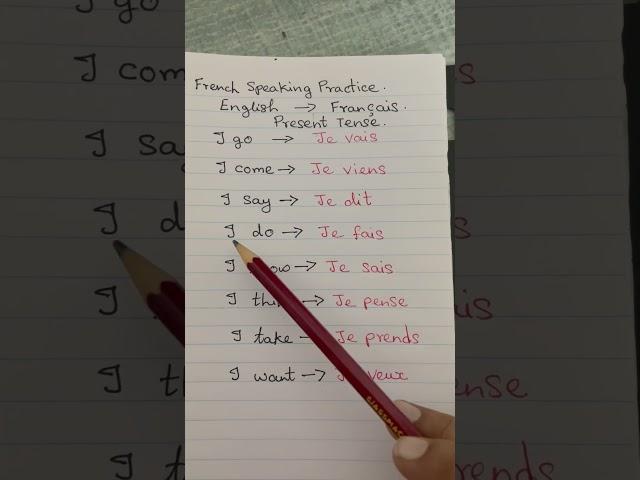 French Speaking Practice.
English → Français.
Present Tense.
I go → Je vais
I come → Je viens
I say → Je dit
I do → Je fais
I → Je sais
I → Je pense
I take → Je prends
I want → veux